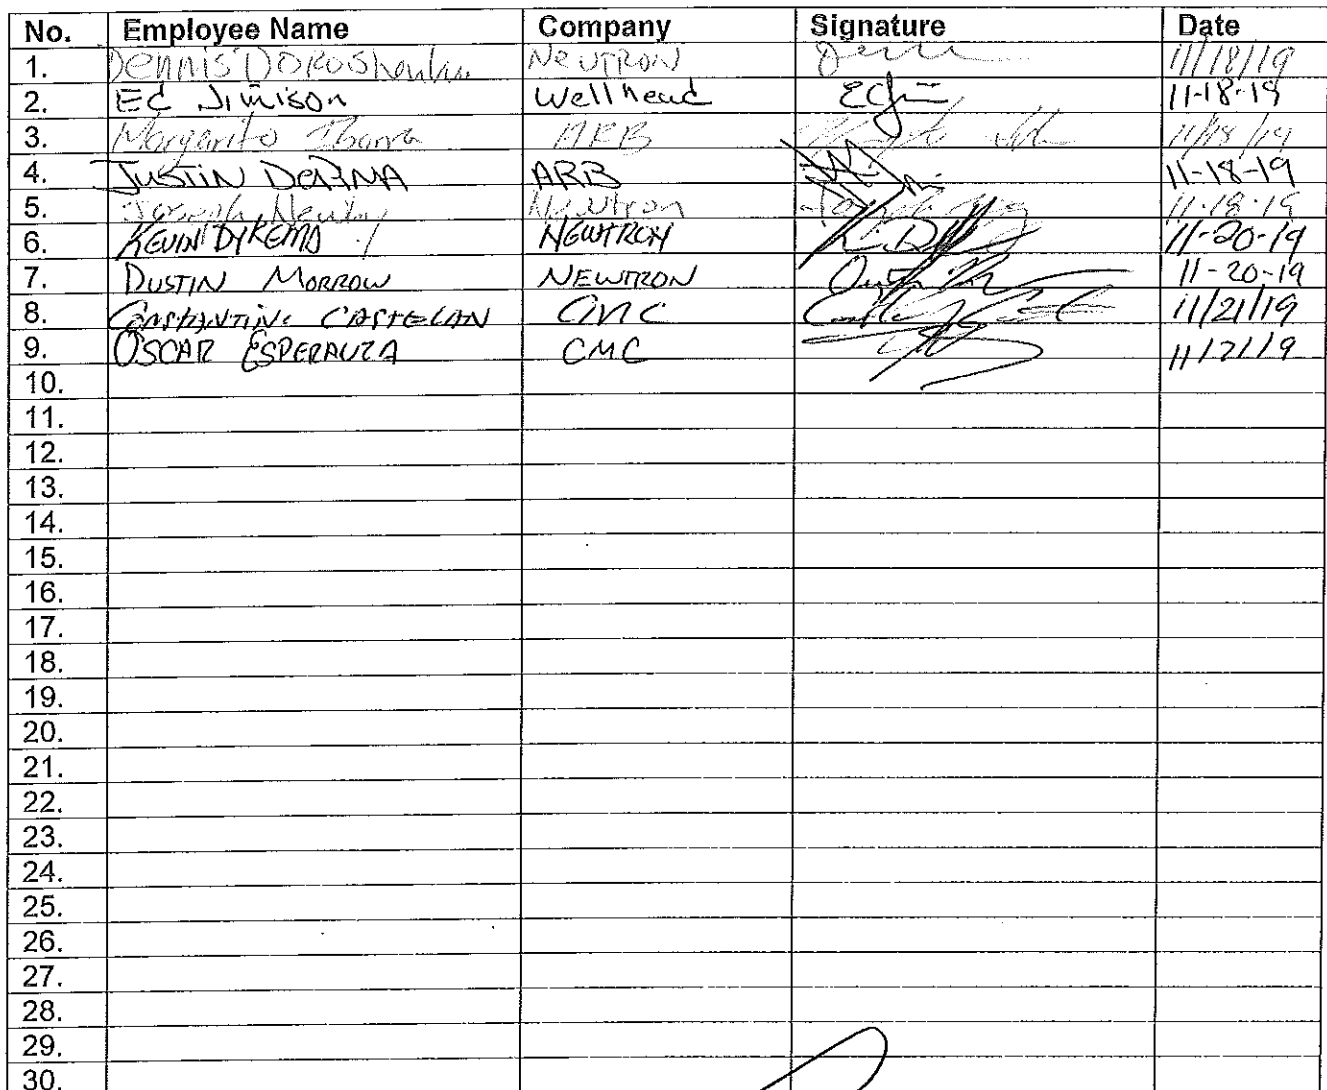 No. Employee Name Company Signature Date
1. Dennis Doroshenko Neutron 11/18/19
2. Ed Jimison Wellhead 11-18-19
3. Margarito Ibarra ARB 11/18/19
4. JUSTIN ARB 11-18-19
5. Joseph Newtron 11-18-19
6. KEVIN DYKEMA NEWTRON 11-20-19
7. DUSTIN MORROW NEWTRON 11-20-19
8. CASTELAN CMC 11/21/19
9. OSCAR ESPERANZA CMC 11/21/19
10.
11.
12.
13.
14.
15.
16.
17.
18.
19.
20.
21.
22.
23.
24.
25.
26.
27.
28.
29.
30.